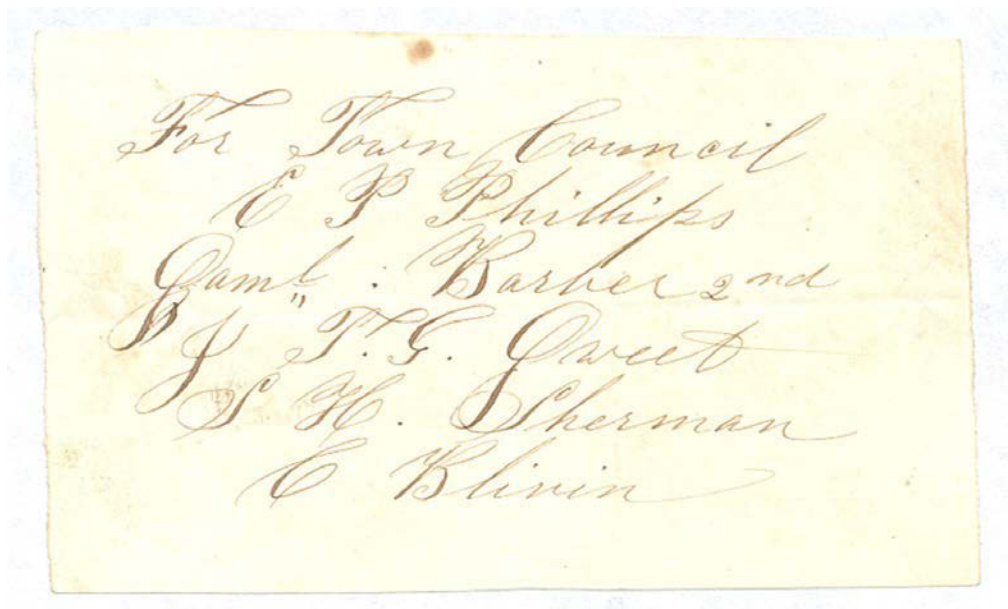 For Town Council
E P Phillips
Saml. Barber 2nd
J " T. G. Sweet
S H. Sherman
E Blivin